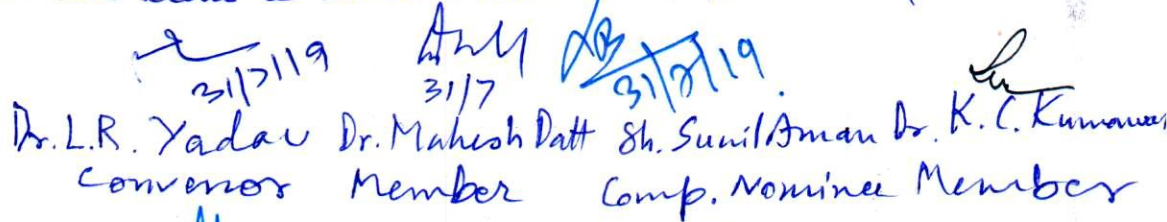 31/7/19 31/7 31/7/19
Dr. L.R. Yadav Dr. Mahesh Datt Sh. Sunil Aman Dr. K. C. Kumawat
Convenor Member Comp. Nominee Member